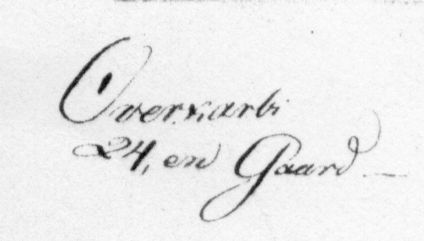 Overkarbi
24, en Gaard